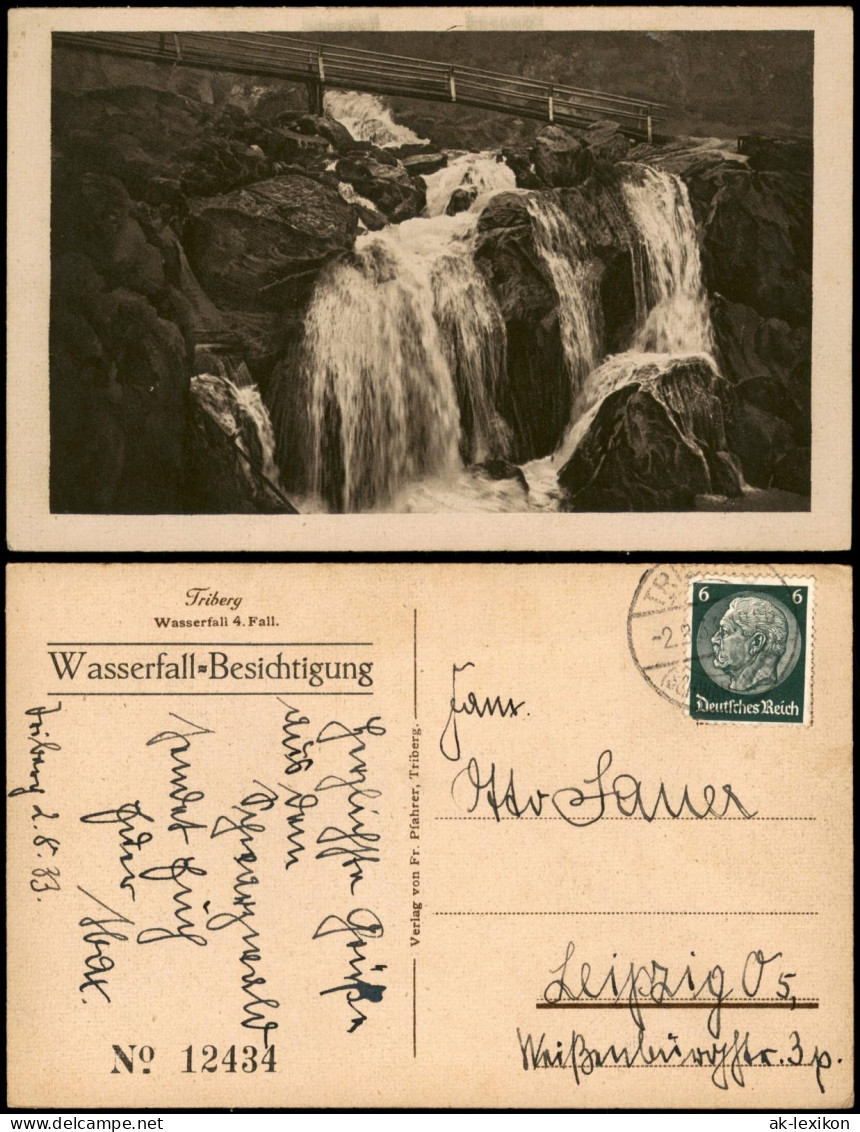 Triberg
Wasserfall 4. Fall.
Wasserfall=Besichtigung
Triberg 2.8.33.
Herzlichste Grüße
aus dem
Schwarzwald
sendet Euch
Euer
Max.
Nº 12434
Verlag von Fr. Pfahrer, Triberg.
TRI
-2.8
6 6
Deutsches Reich
Fam.
Otto Sauer
Leipzig O5,
Weißenburgstr. 3p.
www.delcampe.net
ak-lexikon